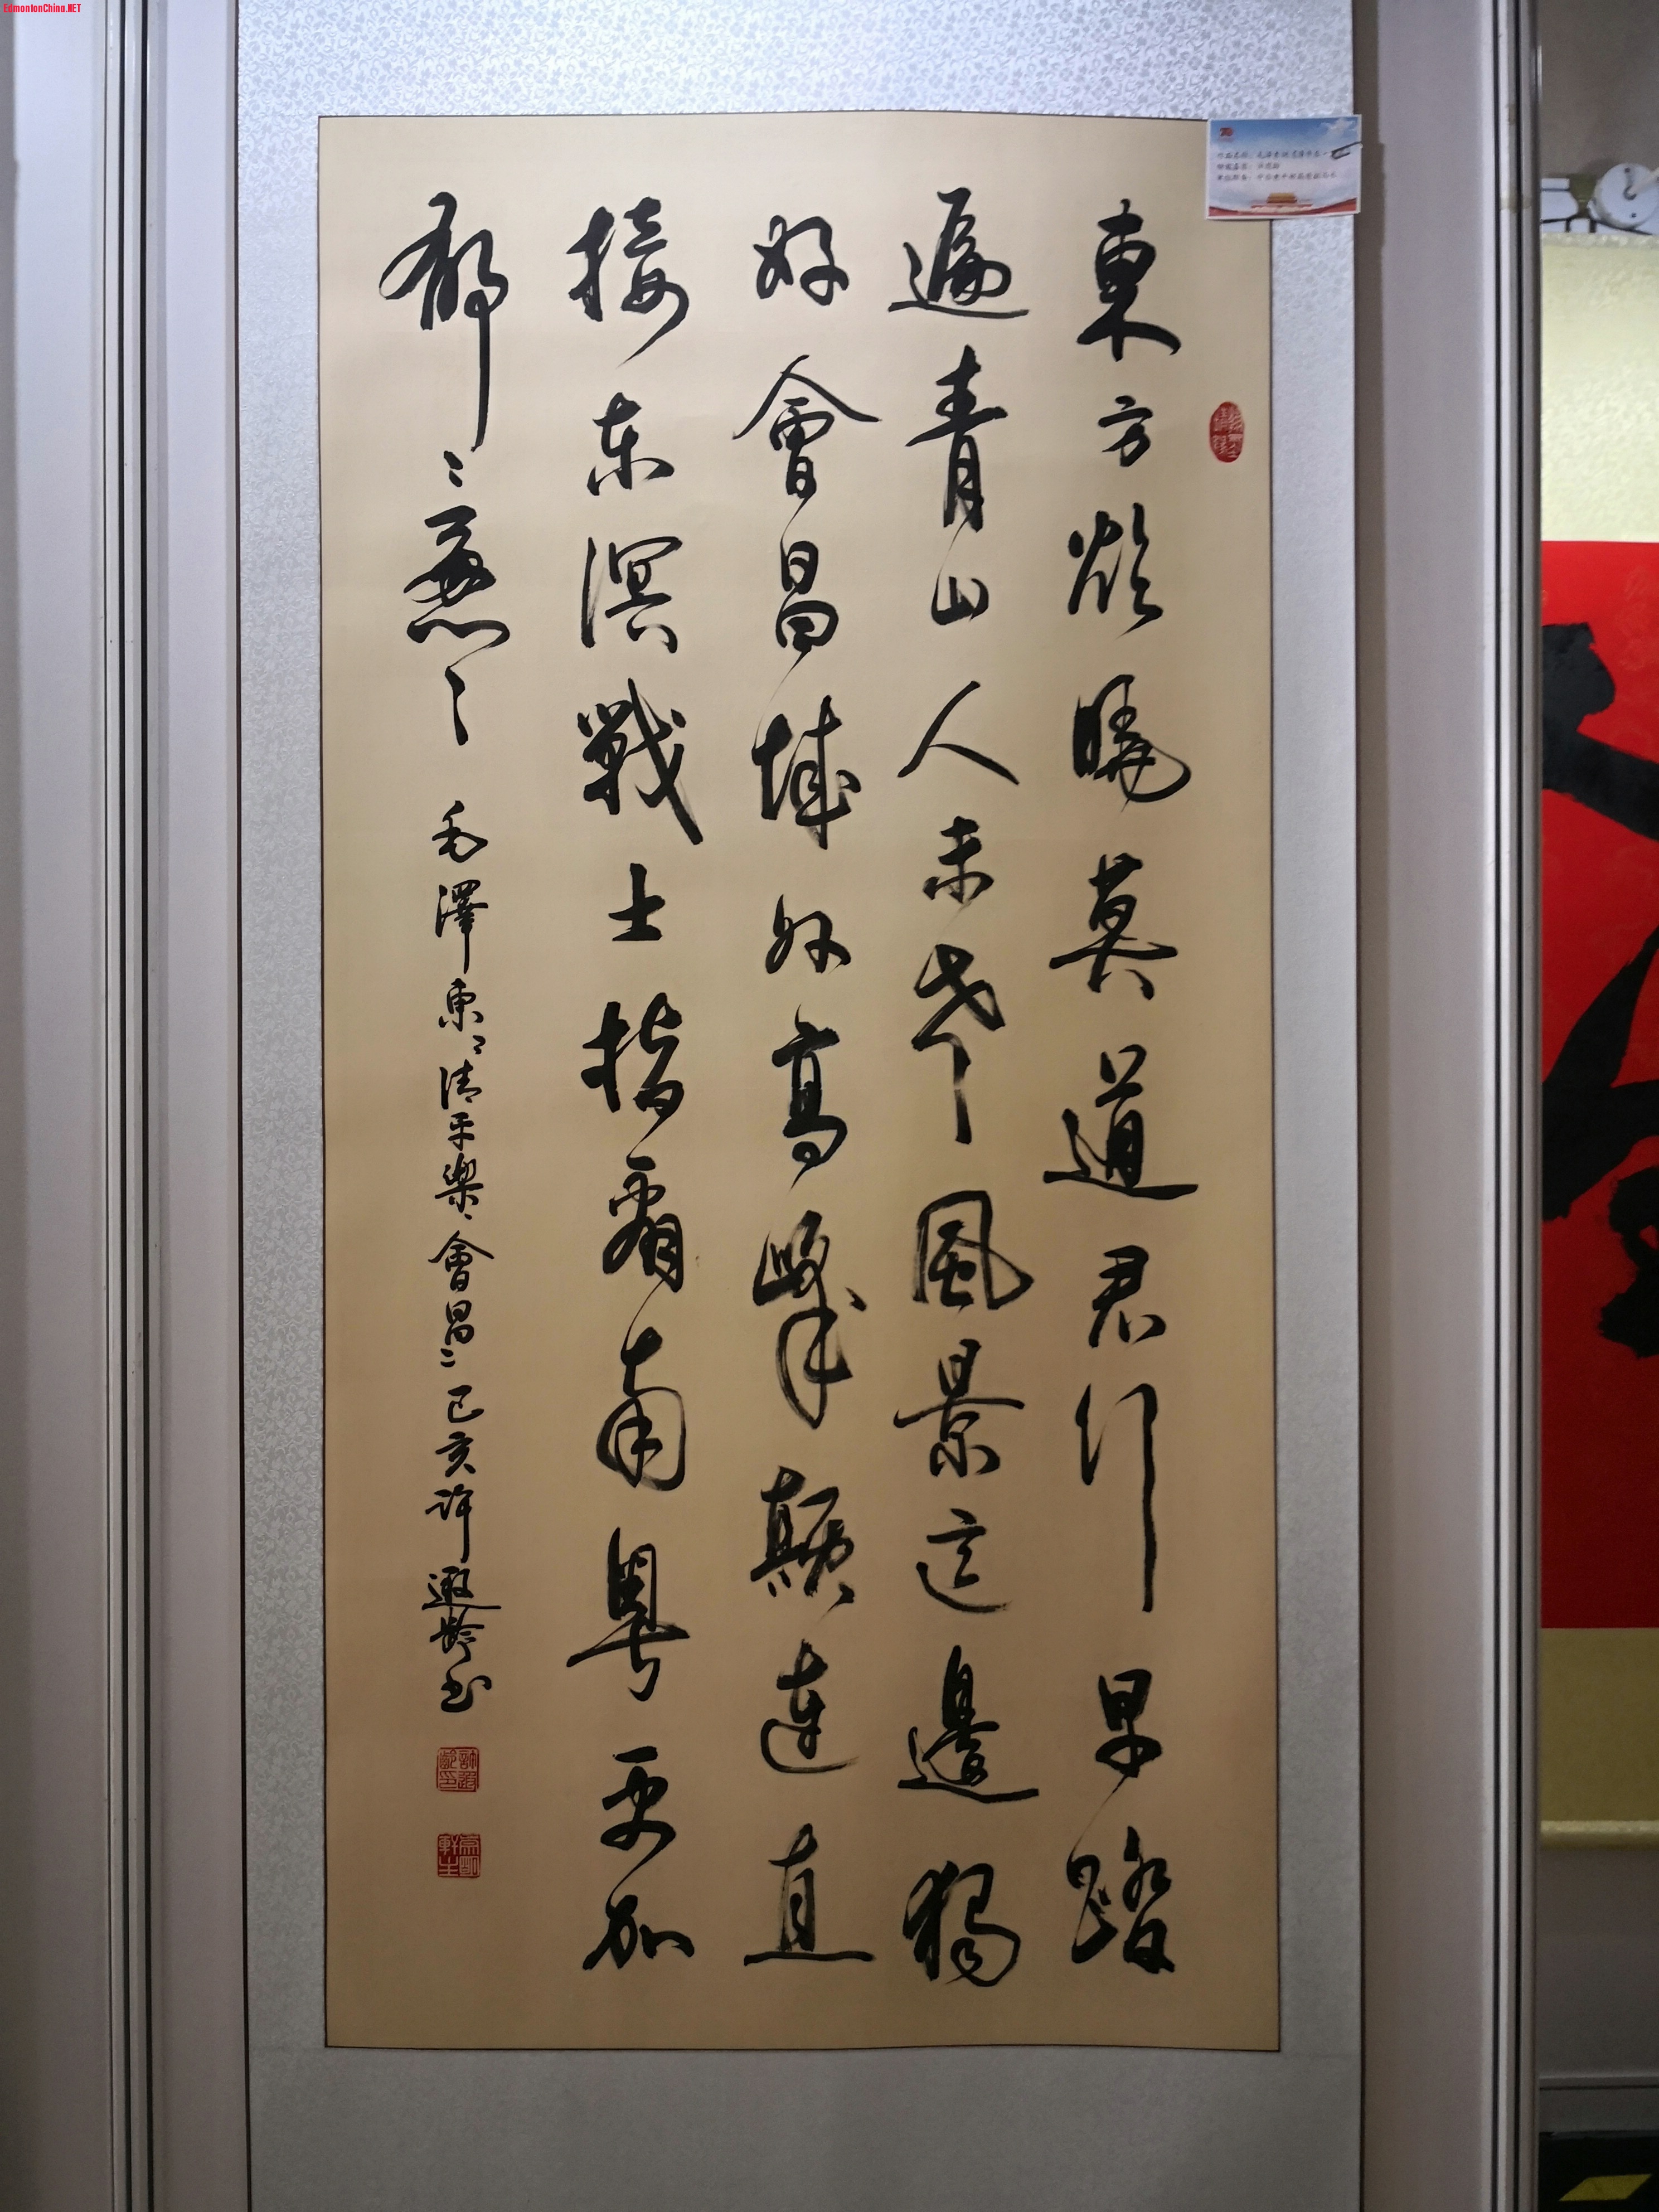 EdmontonChina.NET
東方欲曉莫道君行早踏
遍青山人未老風景這邊獨
好會昌城外高峰顛連直
接东溟戰士指看南粤更加
郁〻蔥〻
毛澤東〻清平樂〻會昌〻己亥許遐齡书
許遐齡印